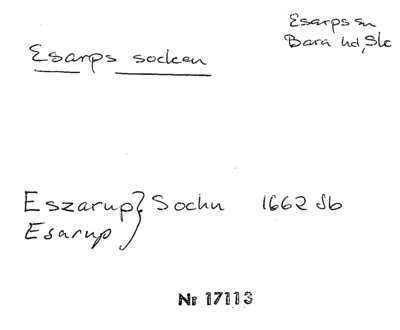 Esarps sn
Bara hd, Sk
Esarps socken
Eszarup } Sochn 1662 Jb
Esarup
Nr 17113